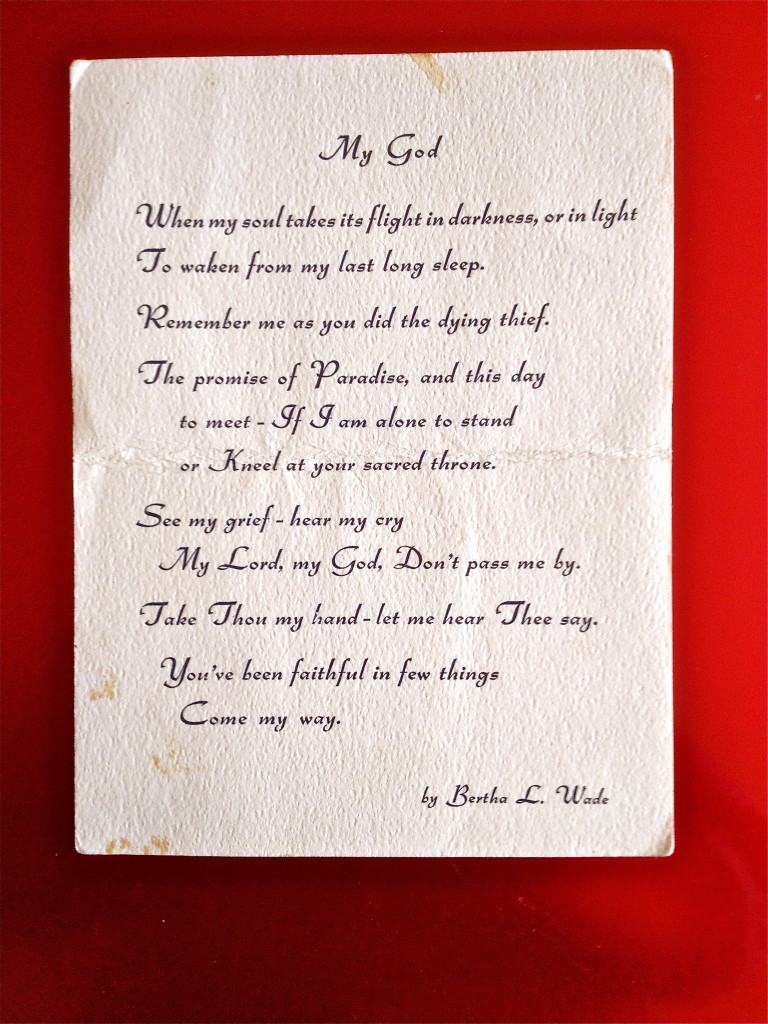 My God
When my soul takes its flight in darkness, or in light
To waken from my last long sleep.
Remember me as you did the dying thief.
The promise of Paradise, and this day
to meet - If I am alone to stand
or Kneel at your sacred throne.
See my grief - hear my cry
My Lord, my God, Don't pass me by.
Take Thou my hand - let me hear Thee say.
You've been faithful in few things
Come my way.
by Bertha L. Wade